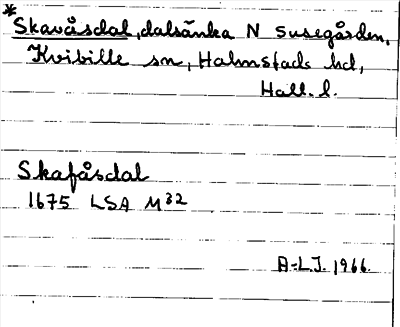 *
Skavåsdal, dalsänka N Susegården,
Kvibille sn, Halmstads hd,
Hall. l.
Skafåsdal
1675 LSA M32
A-LJ. 1966.